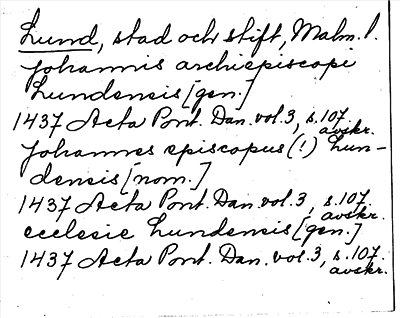 Lund, stad och stift, Malm. l.
Johannis archiepiscopi
Lundensis [gen.]
1437 Acta Pont. Dan. vol. 3, s. 107.
avskr.
Johannes episcopus (!) Lun-
densis [nom.]
1437 Acta Pont. Dan. vol. 3, s. 107.
avskr.
ecclesie Lundensis [gen.]
1437 Acta Pont. Dan. vol. 3, s. 107.
avskr.